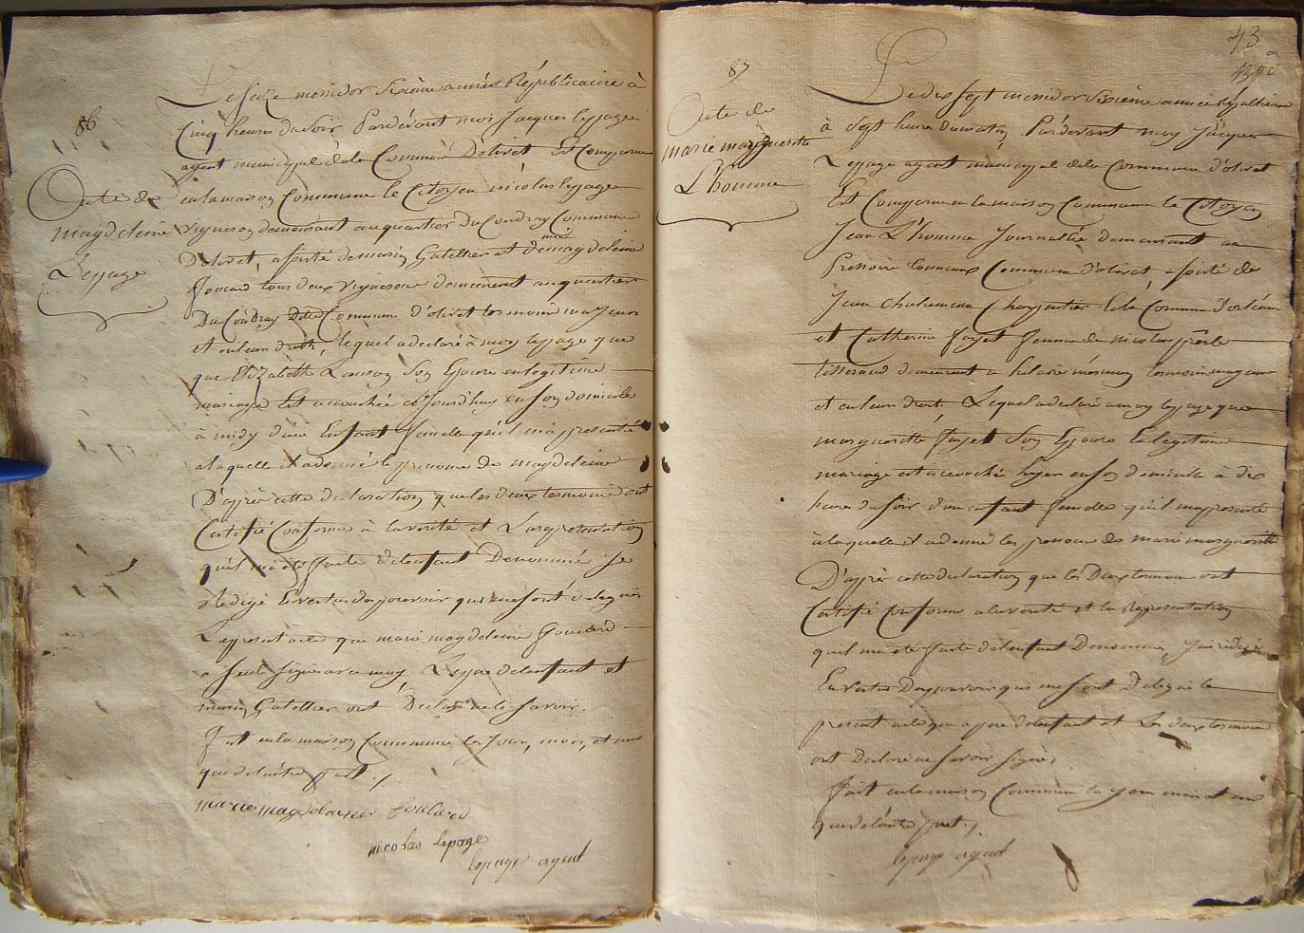 86
Acte de
magdeleine
Lepage
Le seize messidor sixième année Républicaine à
Cinq heures du soir Pardevant moi Jacques lepage
agent municipal de la Commune D'olivet Est Comparu
en la maison Commune le Citoyen nicolas lepage
vigneron demeurant au quartier du Coudray Commune
D'olivet, assisté de marin Gatellier et de marie magdeleine
Fouard tous deux vignerons demeurant au quartier
Du Coudray Commune d'olivet les majeurs
et en leurs droits, lequel a declaré à moy lepage que
que Elizabeth son Epouse en legitime
mariage Est accouchée aujourdhuy en son domicile
à midy d'une Enfant femelle qu'il m'a presenté
a laquelle il a donné le prenom de magdeleine
D'après cette declaration que les deux temoins ont
Certifié Conforme à la verité et La representation
qu'il m'a été faite de l'enfant Denommé Je
rédigé En vertu des pouvoirs qui me sont délégués
Le present acte que marie magdeleine Fouard
a seule signé avec moy, Le pere de l'enfant et
marin Gatellier ont Declaré ne le savoir.
Fait en la maison Commune les Jour, mois, et an
que de l'autre part ./.
marie magdelaine foulard
nicolas lepage
lepage agent
43
87
Acte de
marie marguerite
L'homme
Le dix sept messidor sixième année republicaine
à sept heures du matin Pardevant moy Jacques
Lepage agent municipal de la Commune d'olivet
Est Comparu en la maison Commune le Citoyen
Jean L'homme Journallier demeurant au
Pressoir Commune d'olivet assisté de
Jean Charpentier de la Commune d'orléans
et Catherine forget femme de nicolas
tisserand demeurant a hilaire mesmin temoins majeurs
et en leurs droits Lequel a declaré a moy lepage que
marguerite forget son Epouse En legitime
mariage est accouchée hyer en son domicile à dix
heures du soir d'une enfant femelle qu'il m'a presenté
à laquelle il a donné les prenoms de marie marguerite
D'après cette declaration que les Deux temoins ont
Certifié conforme a la verité et la Representation
qu'il m'a été faite de l'enfant Denommé, J'ai rédigé
En vertu Des pouvoirs qui me sont Delegués le
present acte que le pere de l'enfant et les deux temoins
ont declaré ne savoir signer,
Fait en la maison Commune les jour mois et an
que de l'autre part ./.
lepage agent